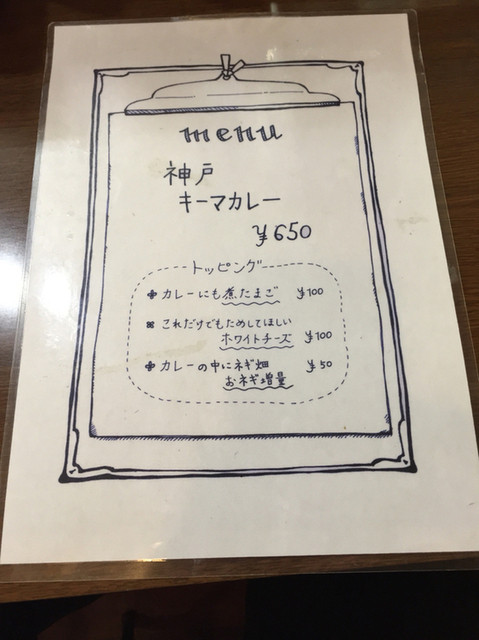 menu
神戸
キーマカレー
¥650
トッピング
カレーにも煮たまご ¥100
これだけでもためしてほしい
ホワイトチーズ ¥100
カレーの中にネギ畑 ¥50
おネギ増量